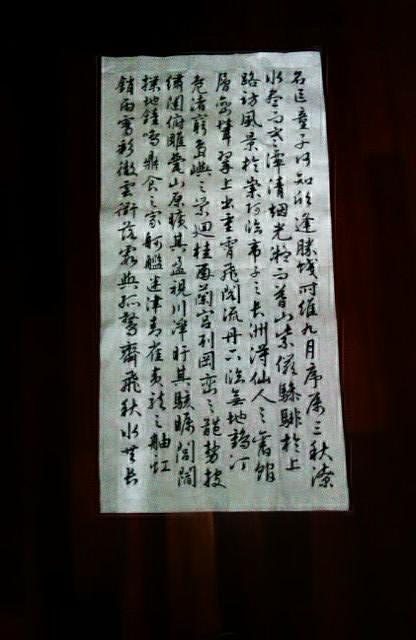 名區童子何知欣逢勝餞时維九月序屬三秋潦
水盡而寒潭清烟光凝而暮山紫儼驂騑於上
路訪風景於崇阿臨帝子之长洲得仙人之舊館
層巒聳翠上出重霄飛閣流丹下臨無地鶴汀
鳧渚窮島嶼之縈迴桂殿蘭宮列岡巒之體勢披
繡闥俯雕甍山原曠其盈視川澤盱其駭矚閭閻
撲地鐘鳴鼎食之家舸艦迷津青雀黃龍之舳虹
銷雨霽彩徹雲衢落霞與孤鶩齊飛秋水共长